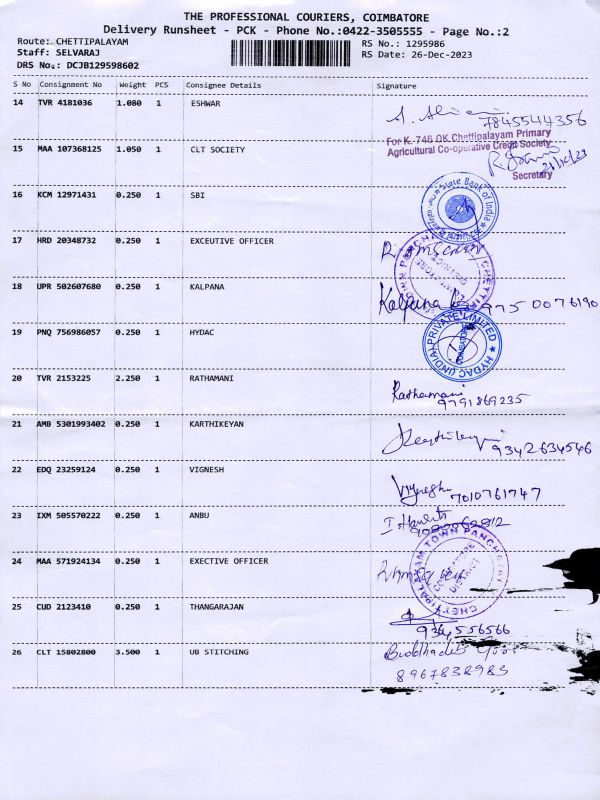 THE PROFESSIONAL COURIERS, COIMBATORE
Delivery Runsheet - PCK - Phone No.:0422-3505555 - Page No.:2
Route: CHETTIPALAYAM RS No.: 1295986
Staff: SELVARAJ RS Date: 26-Dec-2023
DRS No.: DCJB129598602
S No Consignment No Weight PCS Consignee Details Signature
14 TVR 4181036 1.080 1 ESHWAR
7845544356
15 MAA 107368125 1.050 1 CLT SOCIETY
For K.-746 DK.Chettipalayam Primary
Agricultural Co-operative Credit Society
Secretary
16 KCM 12971431 0.250 1 SBI
State Bank of India
17 HRD 20348732 0.250 1 EXCECUTIVE OFFICER
18 UPR 502607680 0.250 1 KALPANA
Kalpana 9750076190
19 PNQ 756986057 0.250 1 HYDAC
HYDAC (INDIA) PRIVATE LIMITED
20 TVR 2153225 2.250 1 RATHAMANI
Rathamani
9791869235
21 AMB 5301993402 0.250 1 KARTHIKEYAN
9342634546
22 EDQ 23259124 0.250 1 VIGNESH
Vignesh 7010761747
23 IXM 505570222 0.250 1 ANBU
24 MAA 571924134 0.250 1 EXECTIVE OFFICER
CHETTIPALAYAM TOWN PANCHAYAT
COIMBATORE
DISTRICT
25 CUD 2123410 0.250 1 THANGARAJAN
26 CLT 15802800 3.500 1 UB STITCHING
8967838983